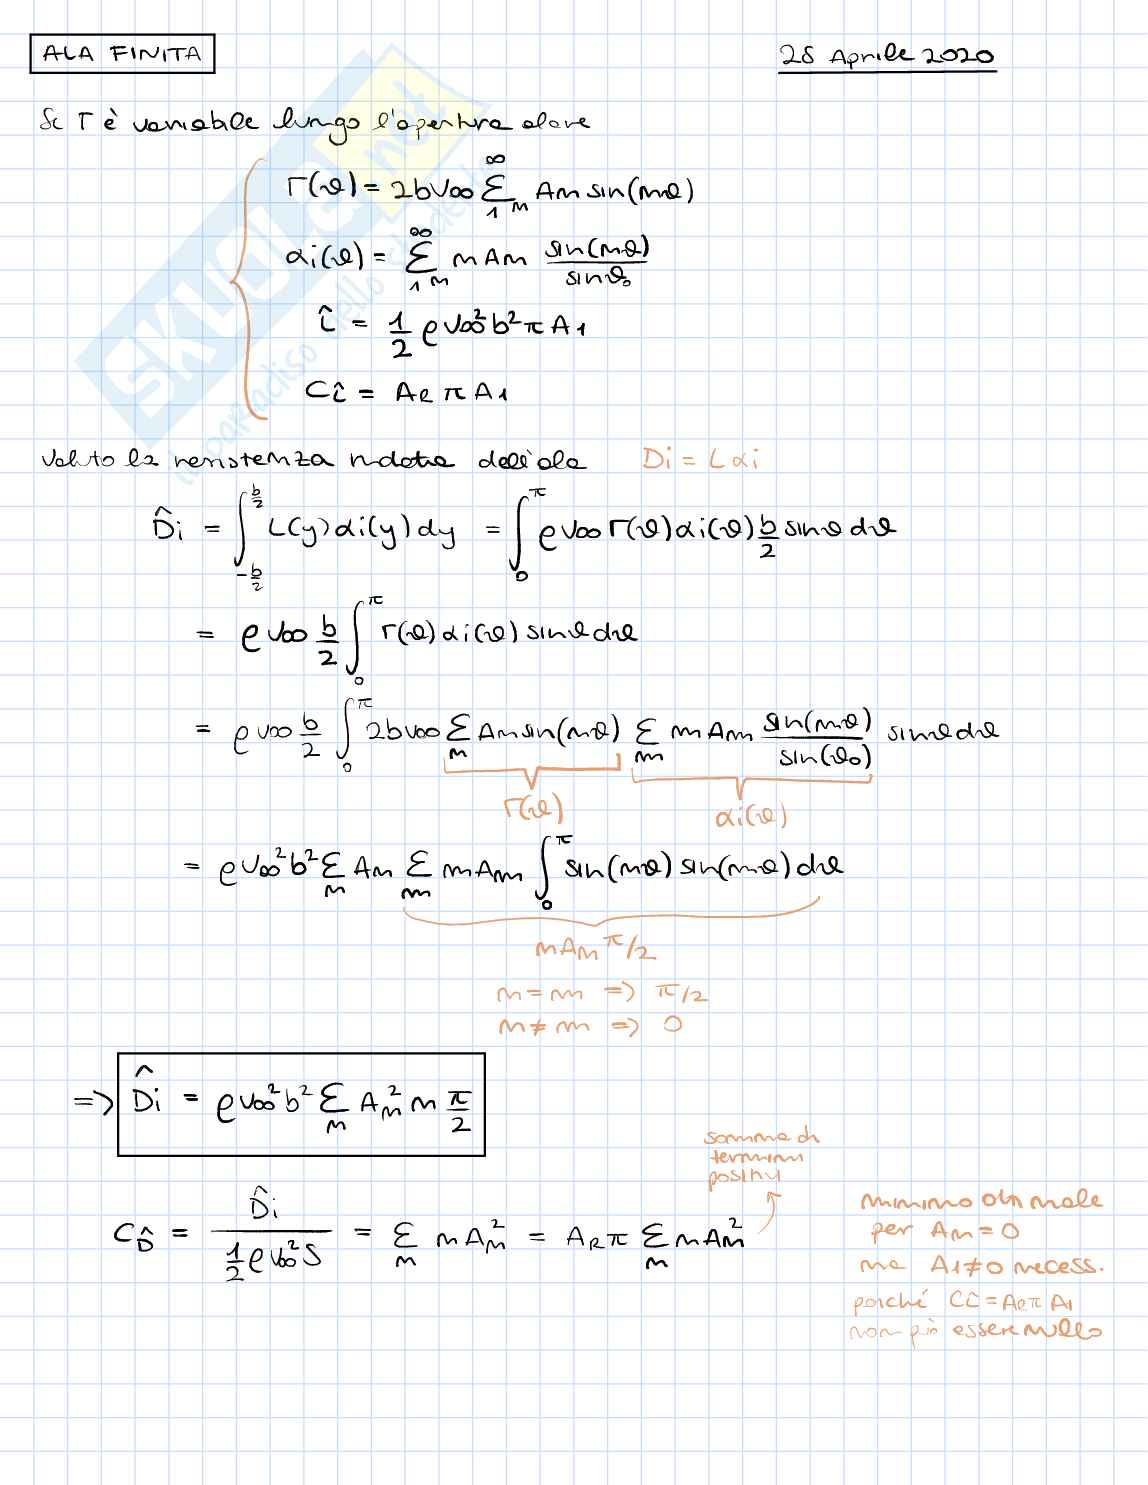 ALA FINITA
28 Aprile 2020
Se Γ è variabile lungo l'apertura alare
Γ(θ) = 2bV∞ Σ₁ₙ^∞ An sin(nθ)
αi(θ) = Σ₁ₙ^∞ n An sin(nθ)/sinθ₀
L̂ = 1/2 ρV∞²b²π A₁
C_L̂ = AR π A₁
Valuto la resistenza indotta dell'ala
Di = L αi
D̂i = ∫_{-b/2}^{b/2} L(y) αi(y) dy = ∫₀^π ρV∞ Γ(θ) αi(θ) b/2 sinθ dθ
= ρV∞ b/2 ∫₀^π Γ(θ) αi(θ) sinθ dθ
= ρV∞ b/2 ∫₀^π 2bV∞ Σn An sin(nθ) Σm m Am sin(mθ)/sin(θ₀) sinθ dθ
Γ(θ) αi(θ)
= ρV∞²b² Σn An Σm m Am ∫₀^π sin(nθ) sin(mθ) dθ
n An π/2
n = m => π/2
n ≠ m => 0
=> D̂i = ρV∞²b² Σn An² n π/2
somma di
termini
positivi
C_D̂ = D̂i / (1/2 ρV∞²S) = Σn n An² = AR π Σn n An²
minimo ottimale
per An = 0
ma A₁ ≠ 0 necess.
perché C_L̂ = AR π A₁
non può essere nullo
SKUOLA.net
il paradiso dello studente